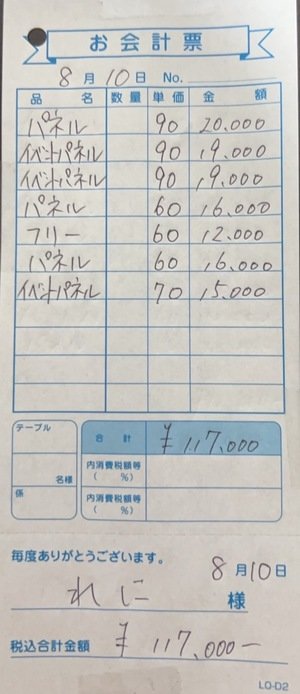 お会計票
8月10日 No.
品名 数量 単価 金額
パネル 90 20.000
イベントパネル 90 19.000
イベントパネル 90 19.000
パネル 60 16.000
フリー 60 12.000
パネル 60 16.000
イベントパネル 70 15.000
テーブル
名様
係
合計 ¥117.000
内消費税額等
( %)
内消費税額等
( %)
毎度ありがとうございます。
8月10日
れに 様
税込合計金額 ¥117.000-
LO-D2